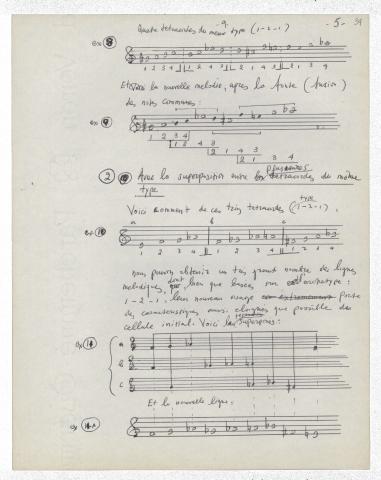 - 5 -
39
Quatre tetracordes du même type (1-2-1)
ex 8
1 2 3 4 1 2 4 3 2 1 4 3 2 1 3 4
Et voici la nouvelle melodie, après la
des notes communes:
ex 9
1 2 3 4
1 2 4 3
2 1 4 3
2 1 3 4
2 Avec la superposition entre plusieurs tetracordes du même
type
Voici comment de ces trois tetracordes (type 1-2-1),
a b c
ex 10
nous pouvons obtenir un tres grand nombre des lignes
melodiques, dont bien que basées sur l'archetype:
1-2-1, leur nouveau visage porte
des caracteristiques aussi eloignés que possible des
cellule initial. Voici les superpons:
ex 11
a
b
c
Et la nouvelle ligne:
ex 11-A